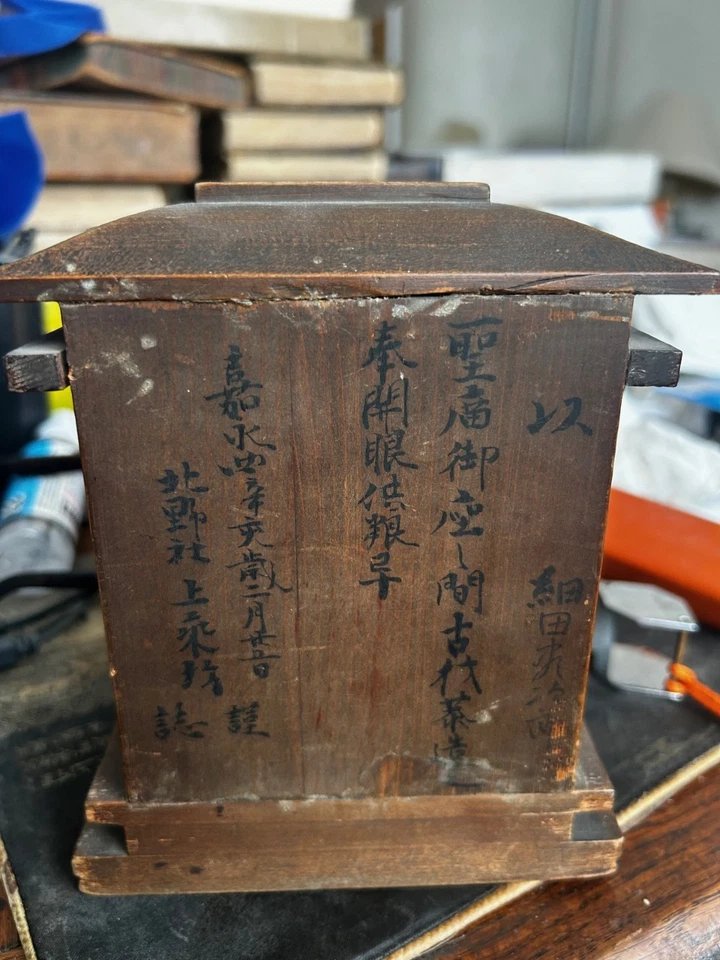 以 細田
聖廟御座し間古代葉造
奉開眼供粮畢
嘉永四辛亥歳二月廿五日 謹
北野社 上乗坊 誌